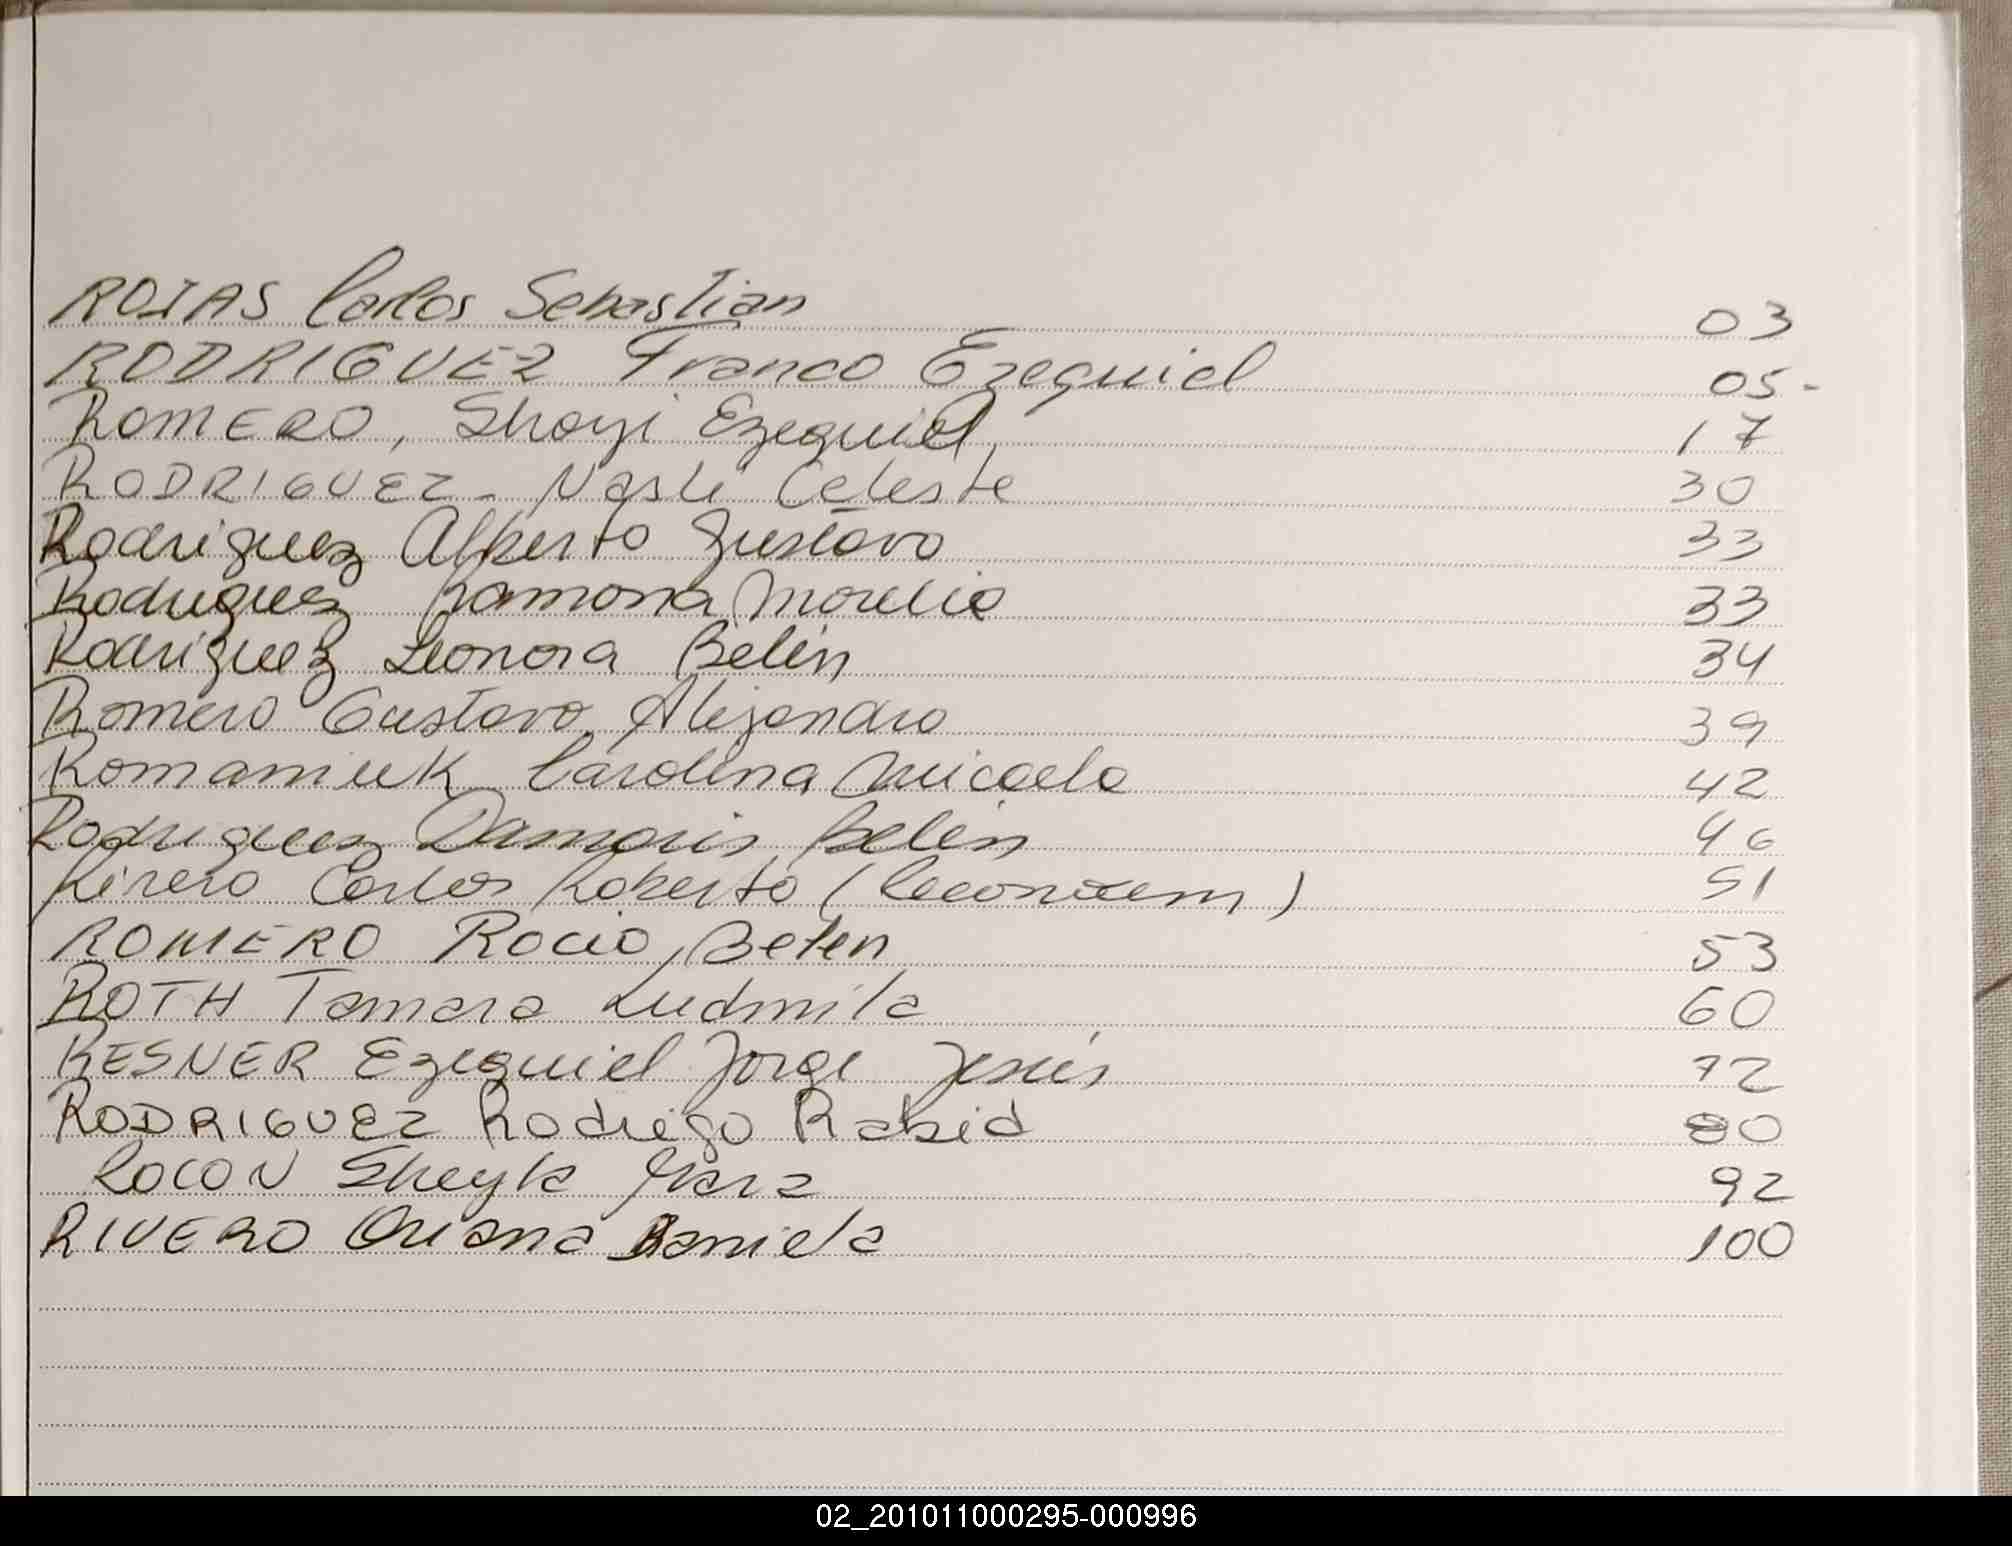 ROJAS Carlos Sebastian 03
RODRIGUEZ Franco Ezequiel 05-
ROMERO, Shoyi Ezequiel, 17
RODRIGUEZ - Celeste 30
Rodriguez Alberto Gustavo 33
Rodriguez Ramona Morelia 33
Rodriguez Leonora Belén 34
Romero Gustavo Alejandro 39
Romaniuk Carolina Micaela 42
Rodriguez Damaris Belén 46
Rivero Carlos Roberto ( ) 51
ROMERO Rocio Belen 53
ROTH Tamara Ludmila 60
RESNER Ezequiel Jorge Jesús 72
RODRIGUEZ Rodrigo 80
ROCON Sheyla 92
RIVERO Oriana Daniela 100
02_201011000295-000996